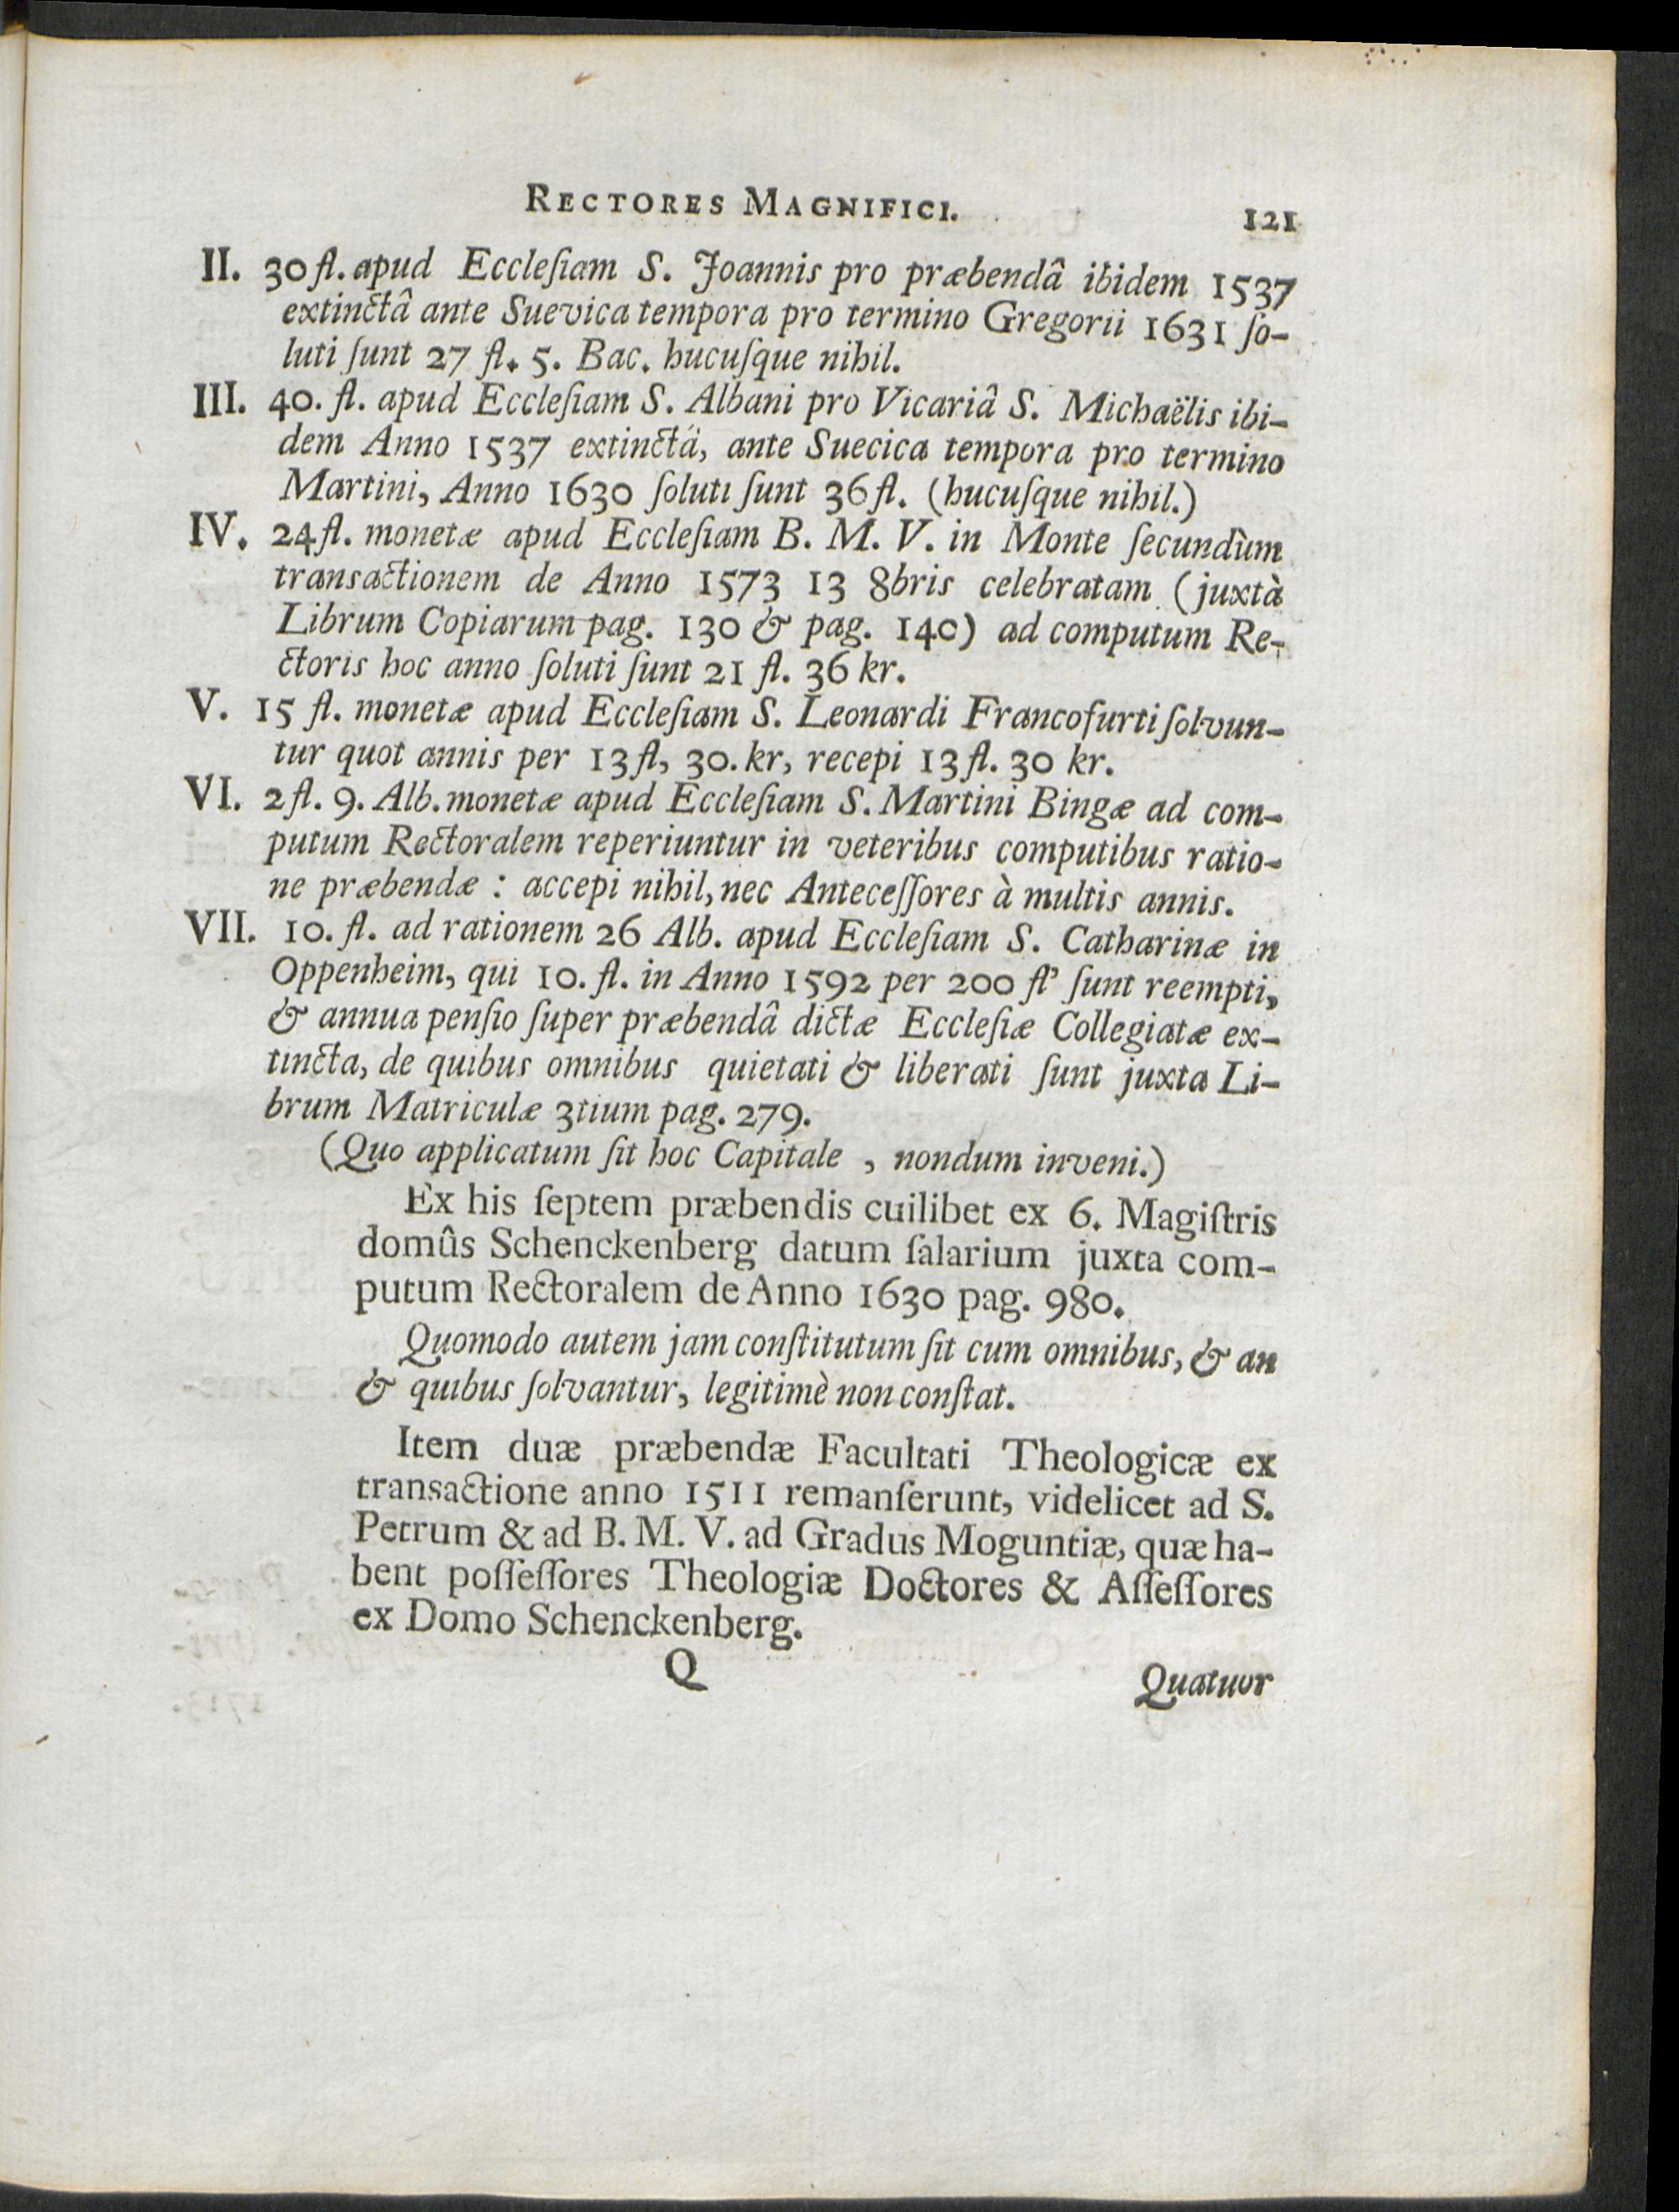 RECTORES MAGNIFICI. 121
II. 30 fl. apud Eccleſiam S. Joannis pro præbendâ ibidem 1537
extinctâ ante Suevica tempora pro termino Gregorii 1631 ſo-
luti ſunt 27 fl. 5. Bac. hucuſque nihil.
III. 40. fl. apud Eccleſiam S. Albani pro Vicariâ S. Michaëlis ibi-
dem Anno 1537 extinctâ, ante Suecica tempora pro termino
Martini, Anno 1630 ſoluti ſunt 36 fl. (hucuſque nihil.)
IV. 24 fl. monetæ apud Eccleſiam B. M. V. in Monte ſecundùm
transactionem de Anno 1573 13 8bris celebratam (juxtà
Librum Copiarum pag. 130 & pag. 140) ad computum Re-
ctoris hoc anno ſoluti ſunt 21 fl. 36 kr.
V. 15 fl. monetæ apud Eccleſiam S. Leonardi Francofurti ſolvun-
tur quot annis per 13 fl, 30. kr, recepi 13 fl. 30 kr.
VI. 2 fl. 9. Alb. monetæ apud Eccleſiam S. Martini Bingæ ad com-
putum Rectoralem reperiuntur in veteribus computibus ratio-
ne præbendæ : accepi nihil, nec Anteceſſores à multis annis.
VII. 10. fl. ad rationem 26 Alb. apud Eccleſiam S. Catharinæ in
Oppenheim, qui 10. fl. in Anno 1592 per 200 fl' ſunt reempti,
& annua penſio ſuper præbendâ dictæ Eccleſiæ Collegiatæ ex-
tincta, de quibus omnibus quietati & liberati ſunt juxta Li-
brum Matriculæ 3tium pag. 279.
(Quo applicatum ſit hoc Capitale , nondum inveni.)
Ex his ſeptem præbendis cuilibet ex 6. Magiſtris
domûs Schenckenberg datum ſalarium juxta com-
putum Rectoralem de Anno 1630 pag. 980.
Quomodo autem jam conſtitutum ſit cum omnibus, & an
& quibus ſolvantur, legitimè non conſtat.
Item duæ præbendæ Facultati Theologicæ ex
transactione anno 1511 remanſerunt, videlicet ad S.
Petrum & ad B. M. V. ad Gradus Moguntiæ, quæ ha-
bent poſſeſſores Theologiæ Doctores & Aſſeſſores
ex Domo Schenckenberg.
Q Quatuor